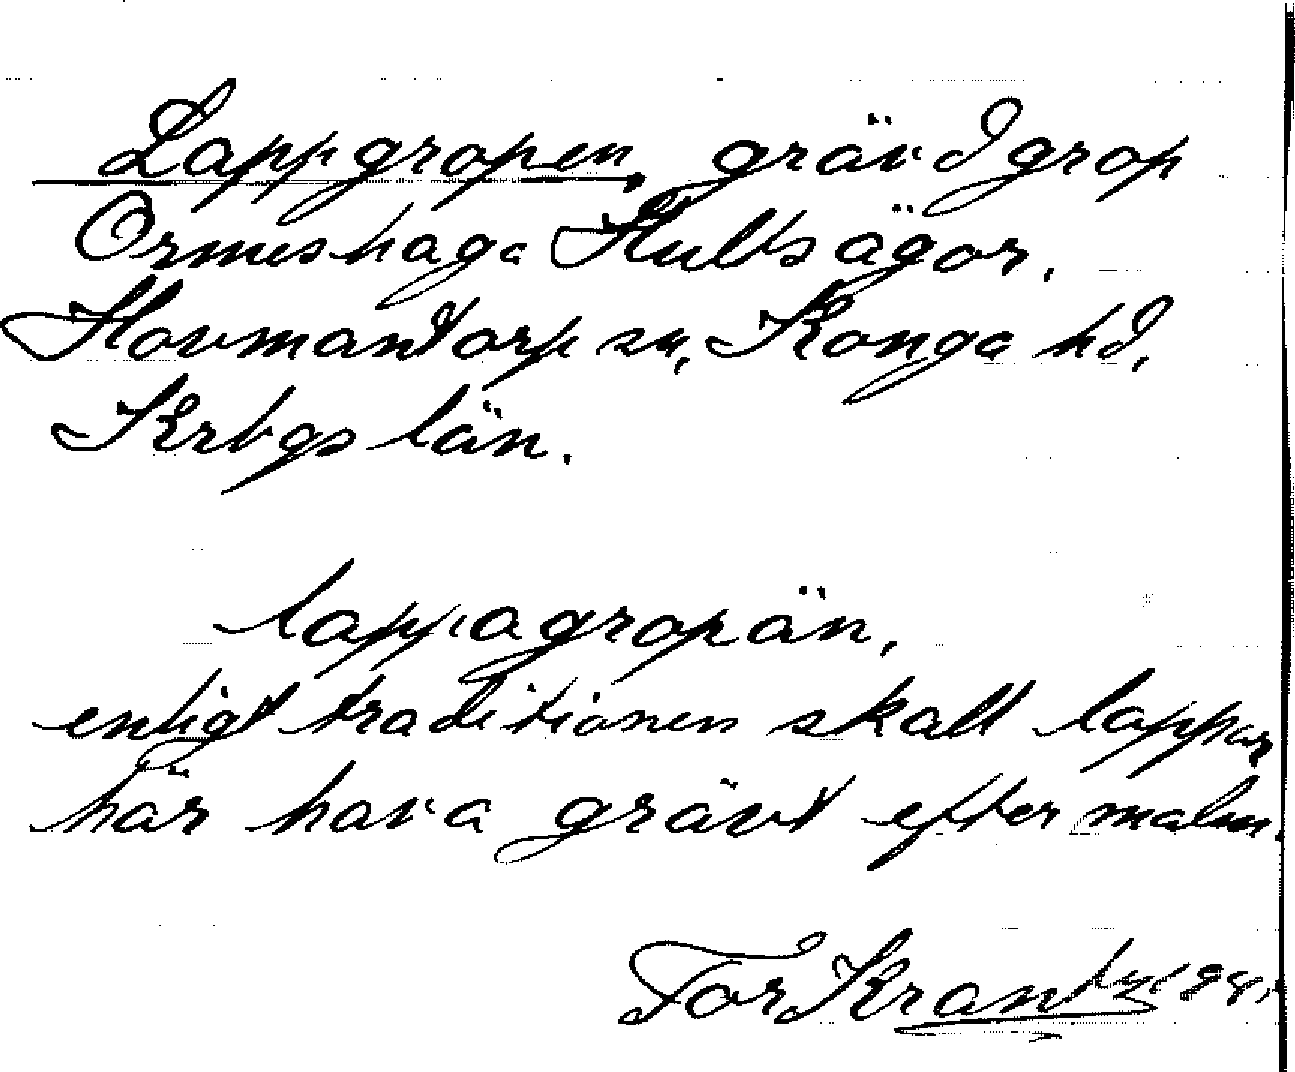 Lappgropen, grävd grop
Ormeshaga Hults ägor,
Hovmantorp sn, Konga hd,
Krbgs län.
lappagropän,
enligt traditionen skall lappar
här hava grävt efter malm.
Tor Krantz